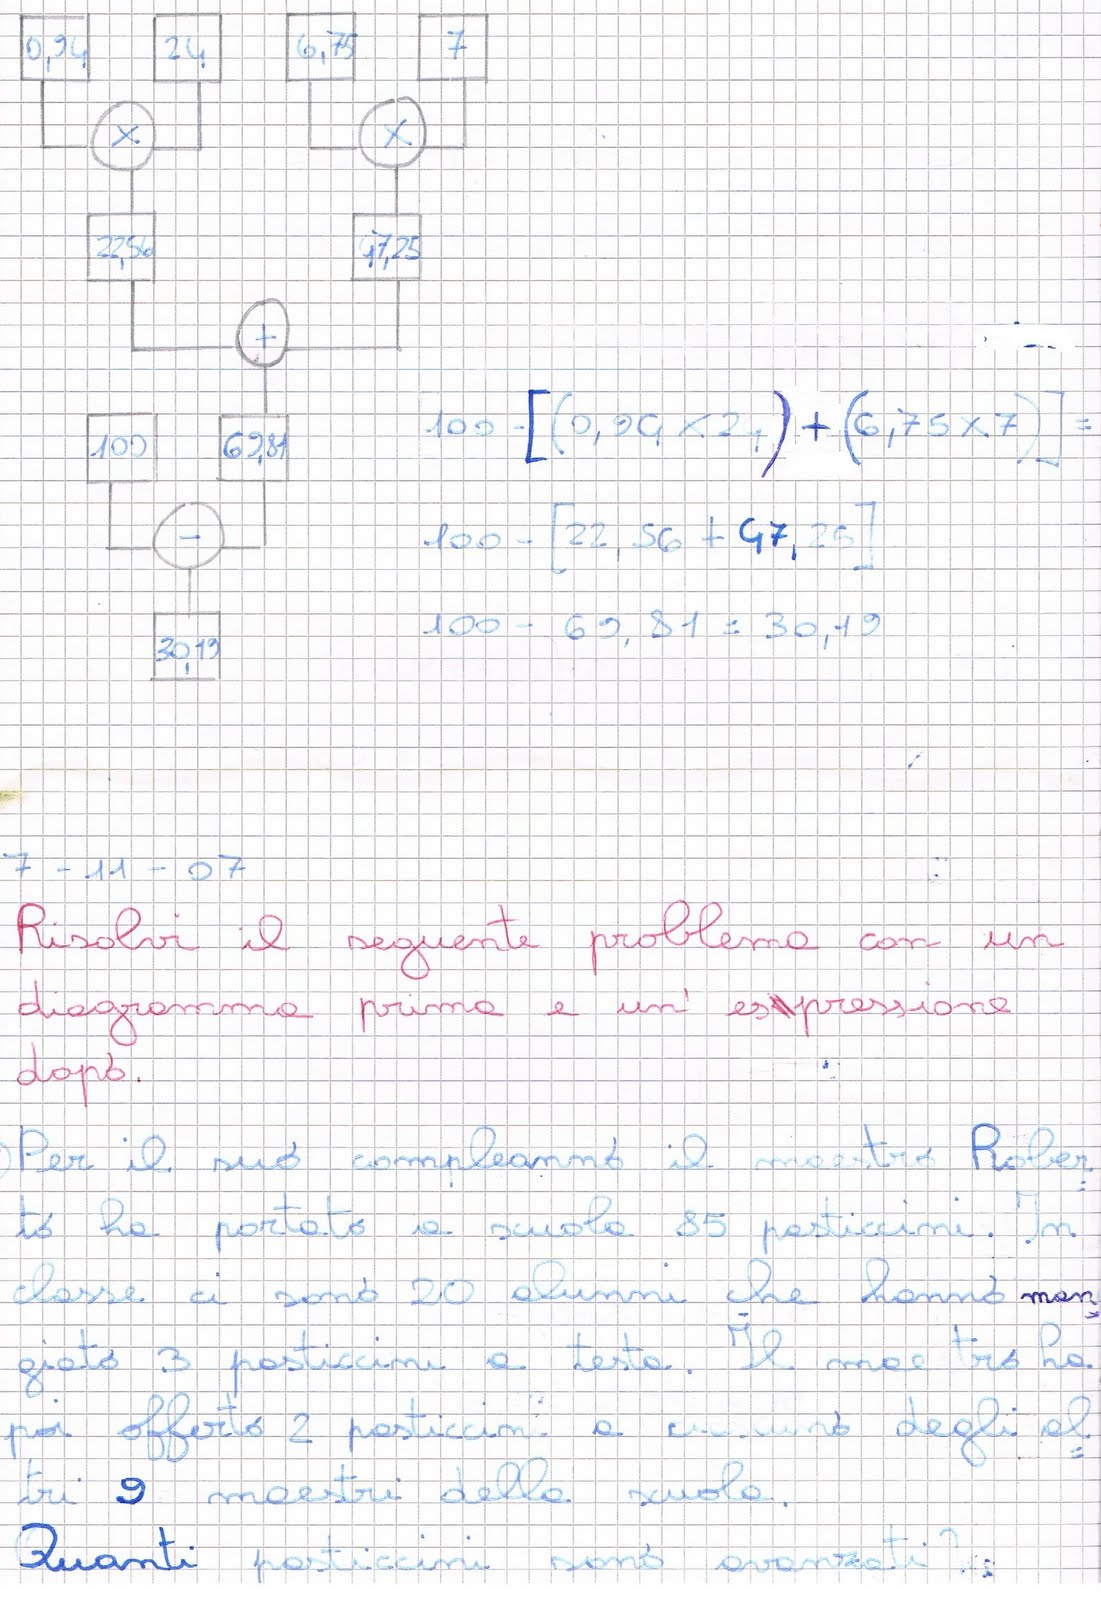 0,94 24 6,75 7
× ×
22,56 47,25
+
100 - [(0,94 × 24) + (6,75 × 7)] =
100 69,81
100 - [22,56 + 47,25]
-
100 - 69,81 = 30,19
30,19
7 - 11 - 07
Risolvi il seguente problema con un
diagramma prima e un' espressione
dopo.
Per il suo compleanno il maestro Rober
to ha portato a scuola 85 pasticcini. In
classe ci sono 20 alunni che hanno man
giato 3 pasticcini a testa. Il maestro ha
poi offerto 2 pasticcini a ciascuno degli al
tri 9 maestri della scuola.
Quanti pasticcini sono avanzati?